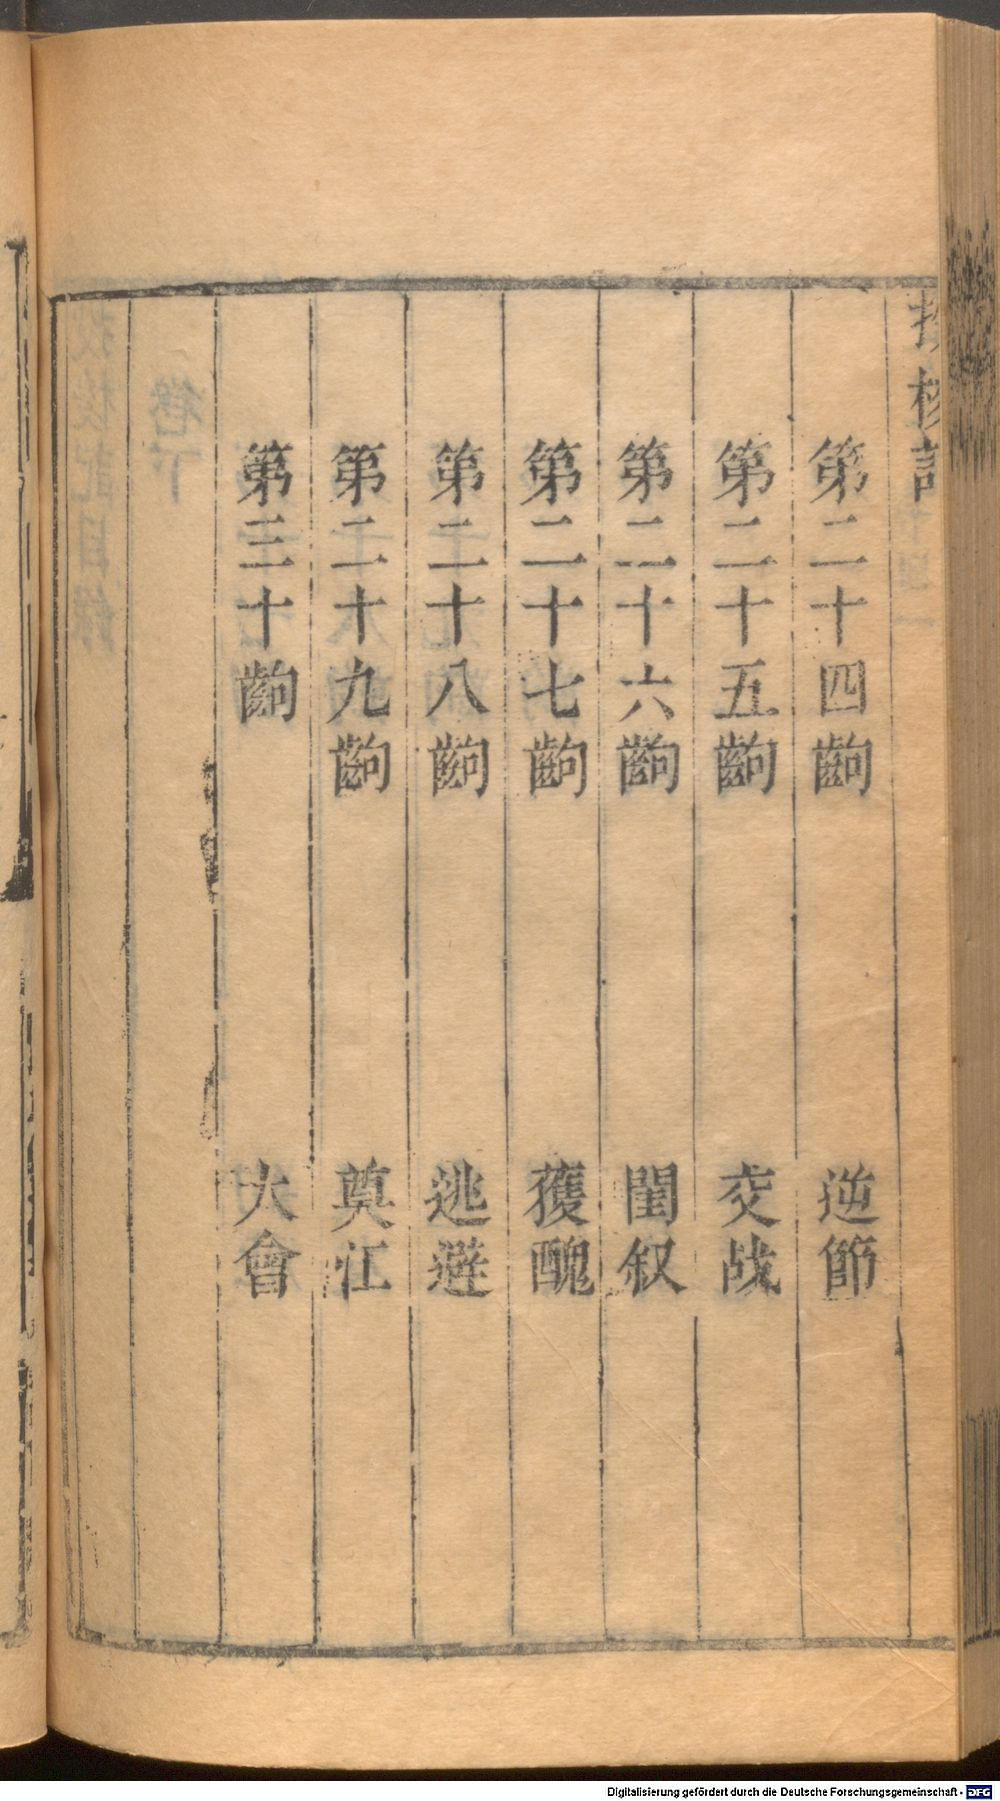 第二十四齣 逆節
第二十五齣 交战
第二十六齣 閨叙
第二十七齣 獲醜
第二十八齣 逃避
第二十九齣 奠江
第三十齣 大會
Digitalisierung gefördert durch die Deutsche Forschungsgemeinschaft - DFG